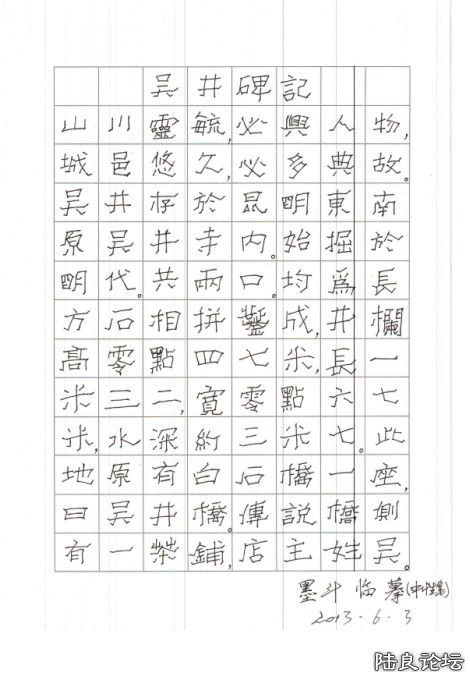 吴井碑記
山川靈毓,必興人物,
城邑悠久,必多典故。
吴井存於昆明東南
原吴井寺内。始掘於
明代。共兩口。均爲長
方石相拼鑿成,井欄
高零點四七米,長一
米三二,寬零點六七
米,水深約三米七。此
地原有白石橋一座,
曰吴井橋。傳説橋側
有一茶鋪,店主姓吴。
墨斗临摹(中性笔)
2013.6.3
陆良论坛